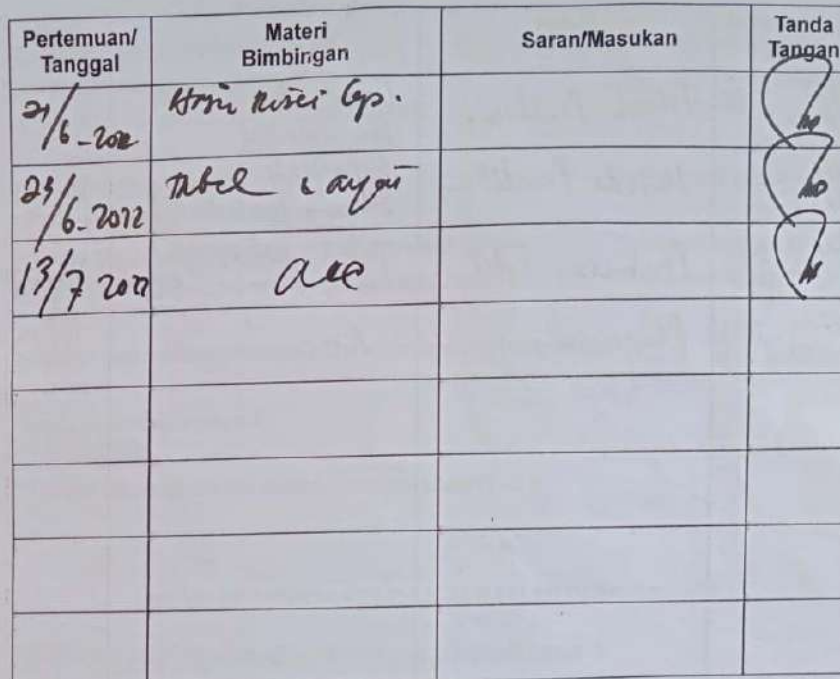 Pertemuan/ Tanggal
Materi Bimbingan
Saran/Masukan
Tanda Tangan
21/6-2022
23/6-2022 Tabel
13/7 2022 acc